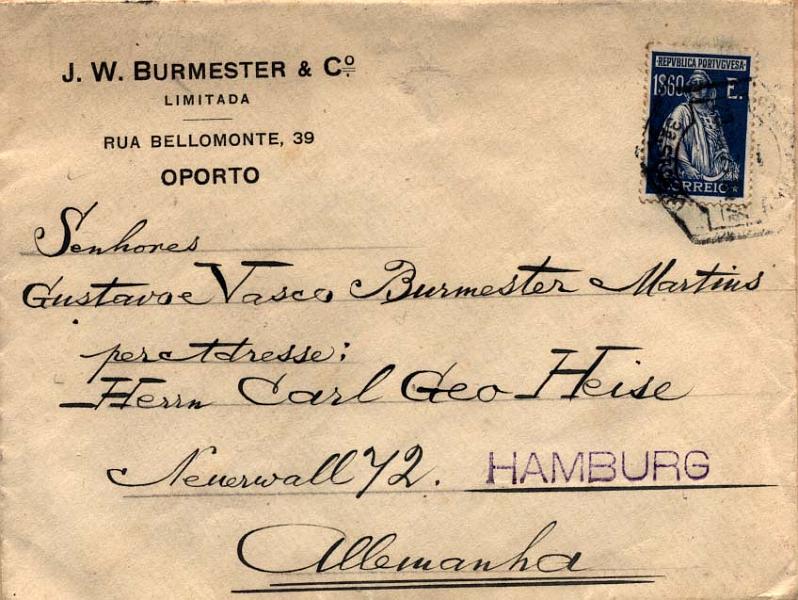 J. W. BURMESTER & Cº
LIMITADA
RUA BELLOMONTE, 39
OPORTO
REPVBLICA PORTVGVESA
1$60 E.
CORREIO
Senhores
Gustavo e Vasco Burmester Martins
per Adresse:
Herrn Carl Geo Heise
Neuerwall 72. HAMBURG
Allemanha